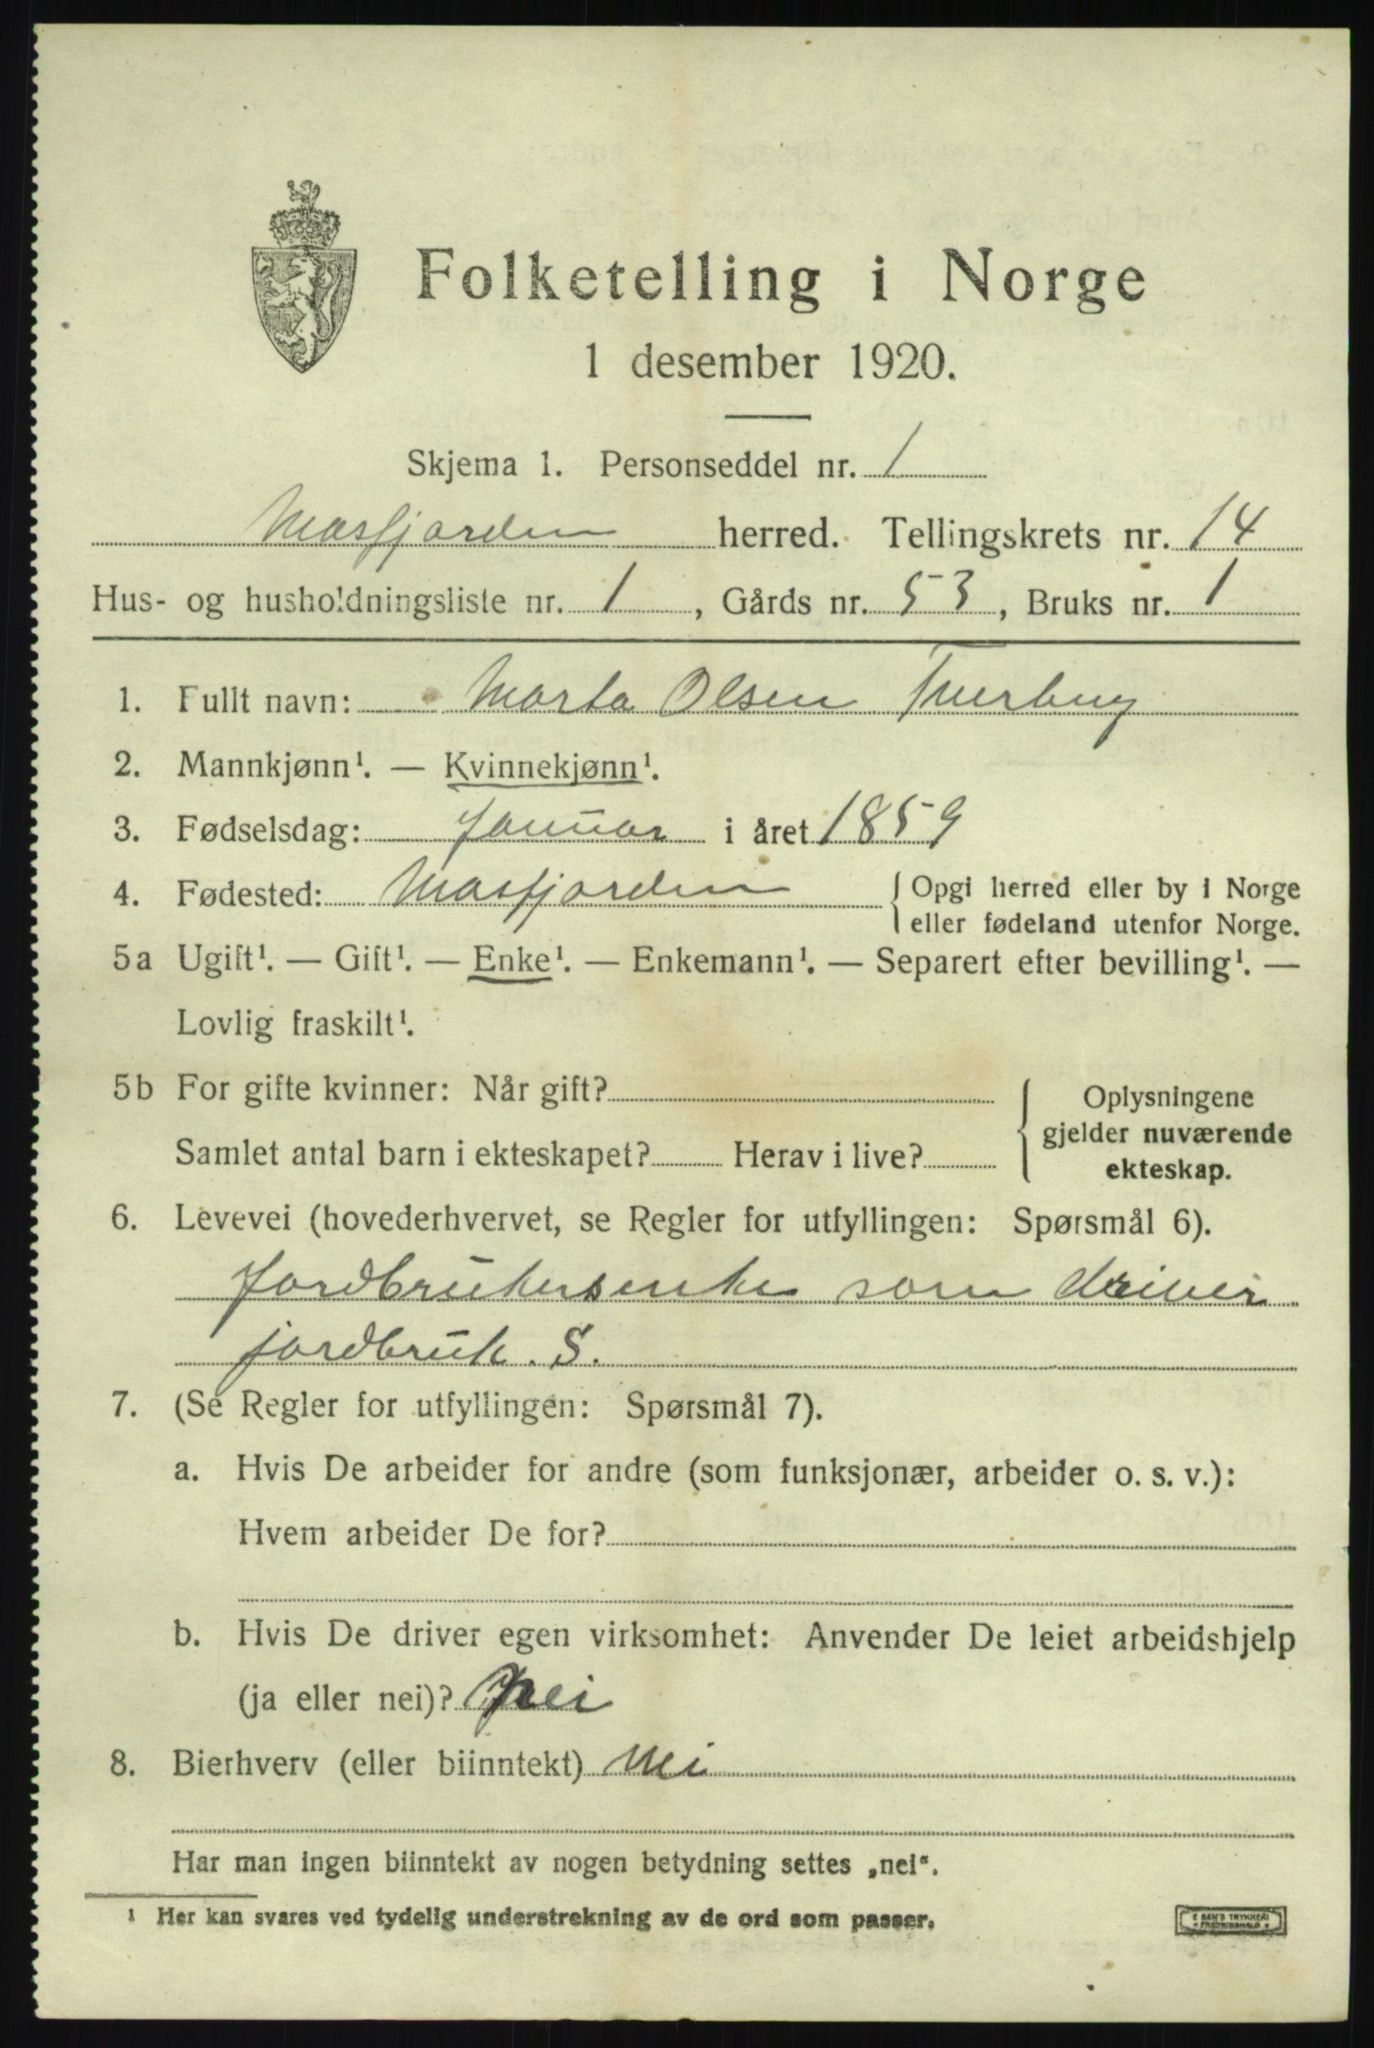 Folketelling i Norge
1 desember 1920.
Skjema 1. Personseddel nr. 1
Masfjorden herred. Tellingskrets nr. 14
Hus- og husholdningsliste nr. 1, Gårds nr. 53, Bruks nr. 1
1. Fullt navn: Marta Olsen
2. Mannkjønn¹. — Kvinnekjønn¹.
3. Fødselsdag: Januar i året 1859
4. Fødested: Masfjorden { Opgi herred eller by i Norge
eller fødeland utenfor Norge.
5a Ugift¹. — Gift¹. — Enke¹. — Enkemann¹. — Separert efter bevilling¹. —
Lovlig fraskilt¹.
5b For gifte kvinner: Når gift?
Samlet antal barn i ekteskapet? Herav i live?
Oplysningene
gjelder nuværende
ekteskap.
6. Levevei (hovederhvervet, se Regler for utfyllingen: Spørsmål 6).
Jordbrukersenke som driver
jordbruk. S.
7. (Se Regler for utfyllingen: Spørsmål 7).
a. Hvis De arbeider for andre (som funksjonær, arbeider o. s. v.):
Hvem arbeider De for?
b. Hvis De driver egen virksomhet: Anvender De leiet arbeidshjelp
(ja eller nei)? Nei
8. Bierhverv (eller biinntekt) Nei
Har man ingen biinntekt av nogen betydning settes „nei“.
¹ Her kan svares ved tydelig understrekning av de ord som passer.